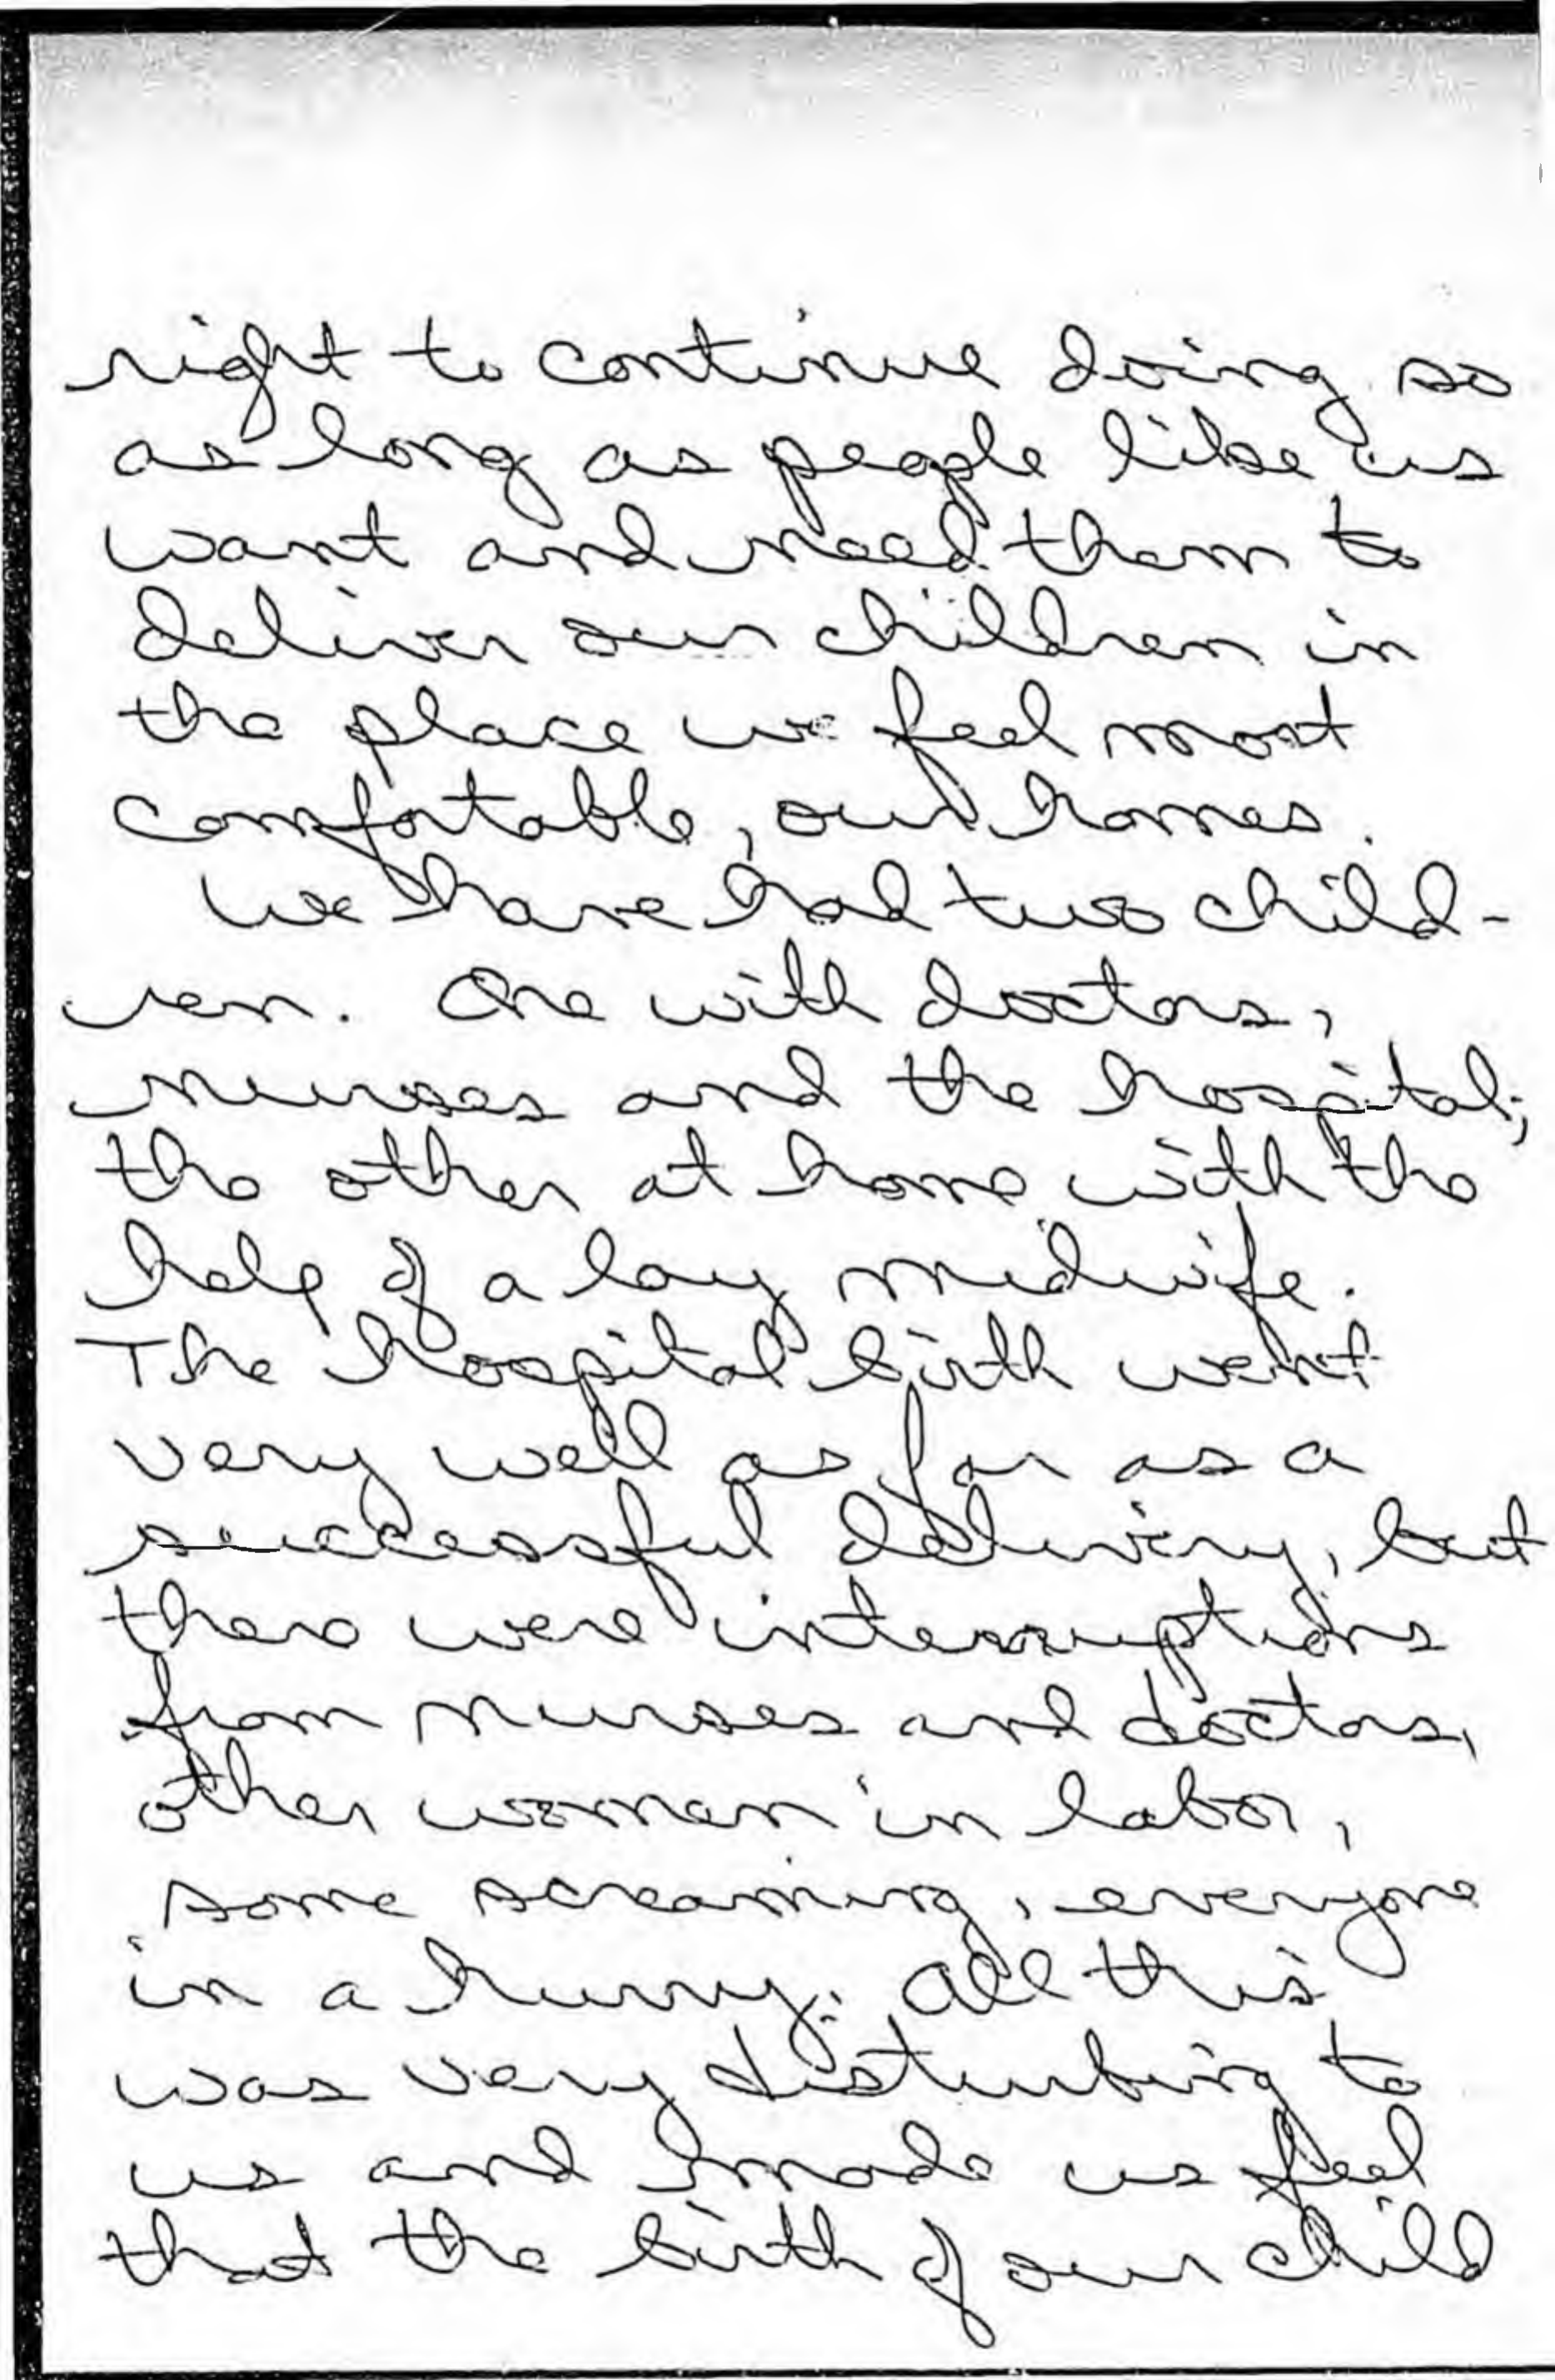 right to continue doing so
as long as people like us
want and need them to
deliver our children in
the place we feel most
comfortable, our homes.
We have had two child-
ren. One with doctors,
nurses and the hospital;
the other at home with the
help of a lay midwife.
The hospital birth went
very well as far as a
successful delivery, but
there were interruptions
from nurses and doctors,
other women in labor,
some screaming, everyone
in a hurry. All this
was very disturbing to
us and made us feel
that the birth of our child